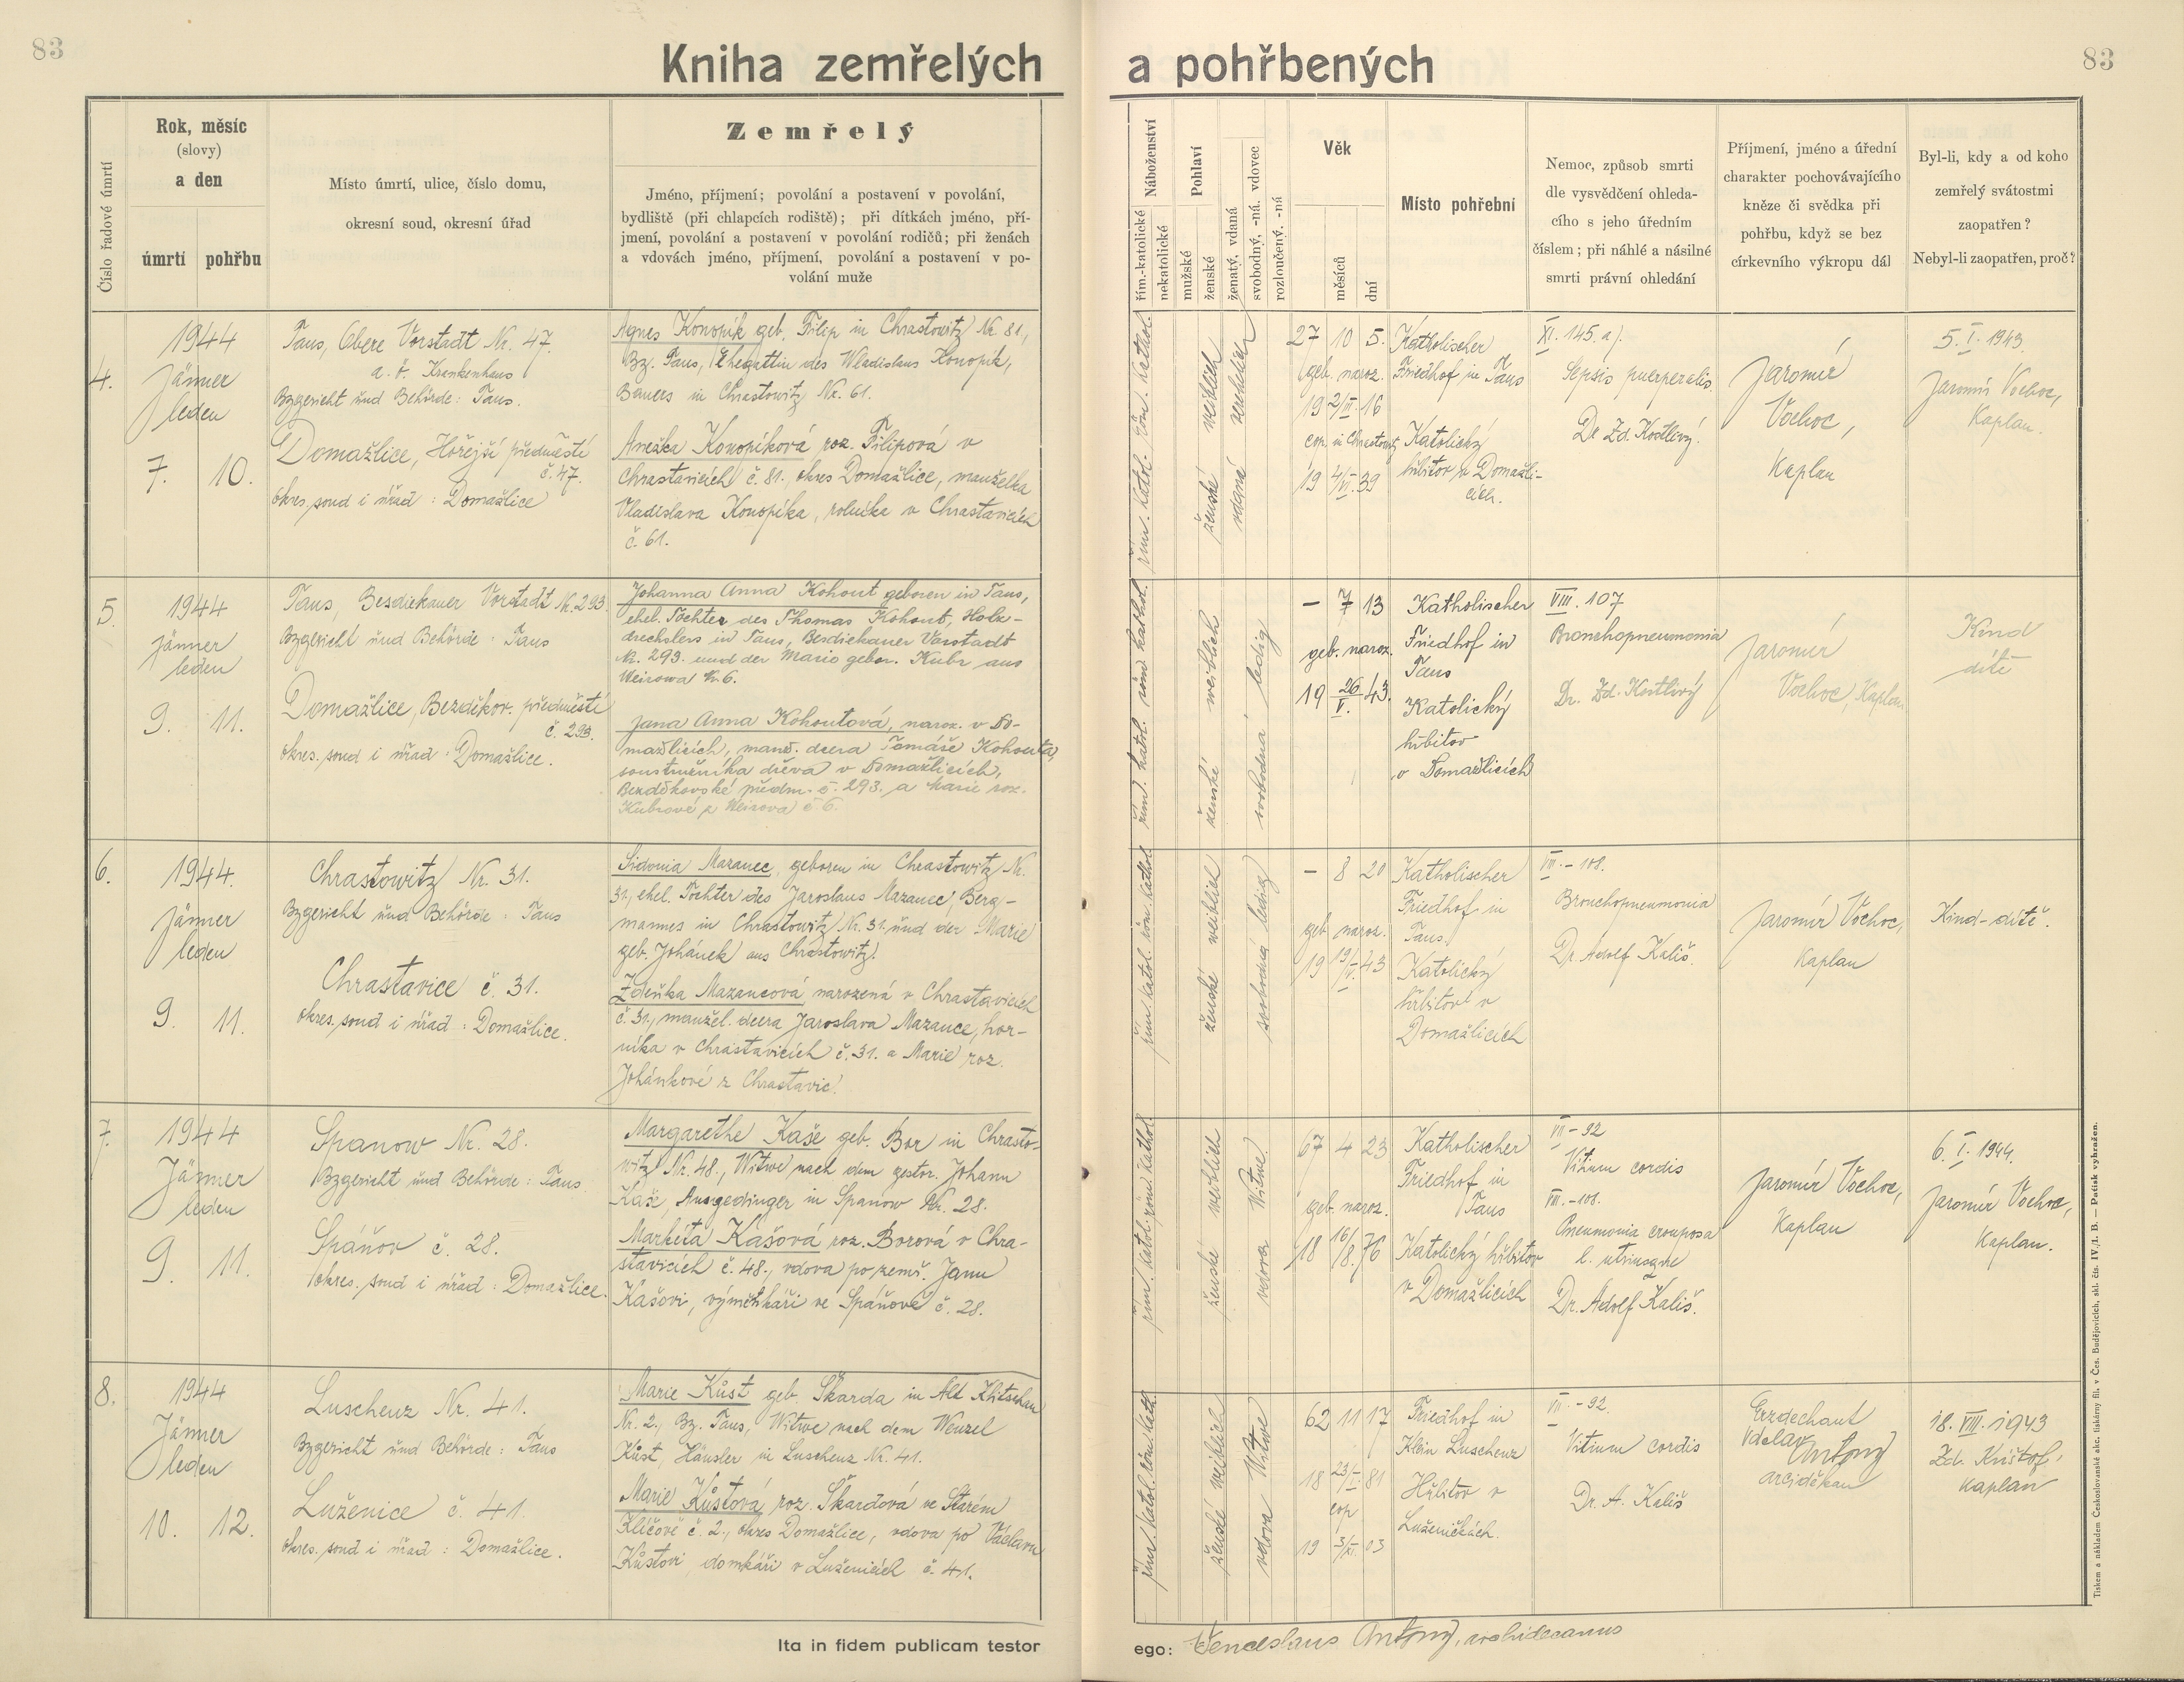 83
Kniha zemřelých a pohřbených
83
Číslo řadové úmrtí
Rok, měsíc
(slovy)
a den
úmrtí pohřbu
Místo úmrtí, ulice, číslo domu,
okresní soud, okresní úřad
Zemřelý
Jméno, příjmení; povolání a postavení v povolání,
bydliště (při chlapcích rodiště); při dítkách jméno, pří-
jmení, povolání a postavení v povolání rodičů; při ženách
a vdovách jméno, příjmení, povolání a postavení v po-
volání muže
Náboženství
řím.-katolické
nekatolické
Pohlaví
mužské
ženské
ženatý, vdaná
svobodný, -ná. vdovec
rozloučený. -ná
Věk
měsíců
dní
Místo pohřební
Nemoc, způsob smrti
dle vysvědčení ohleda-
cího s jeho úředním
číslem; při náhlé a násilné
smrti právní ohledání
Příjmení, jméno a úřední
charakter pochovávajícího
kněze či svědka při
pohřbu, když se bez
církevního výkropu dál
Byl-li, kdy a od koho
zemřelý svátostmi
zaopatřen?
Nebyl-li zaopatřen, proč?
4.
1944
Jänner
leden
7. 10.
Taus, Obere Vorstadt Nr. 47.
a. ö. Krankenhaus
Bzgericht und Behörde: Taus.
Domažlice, Hořejší předměstí
č. 47.
okres. soud i úřad: Domažlice
Agnes Konopik geb. Filip in Chrastowitz Nr. 81,
Bz. Taus, Ehegattin des Wladislaus Konopik,
Bauers in Chrastowitz Nr. 61.
Anežka Konopíková roz. Filipová v
Chrastavicích č. 81., okres Domažlice, manželka
Vladislava Konopíka, rolníka v Chrastavicích
č. 61.
řím. katol. röm. kathol.
ženské weiblich
vdaná verehelicht
27 10 5.
geb. naroz.
19 2/III. 16
cop. in Chrastowitz
19 4/VI. 39
Katholischer
Friedhof in Taus
Katolický
hřbitov v Domažli-
cích.
XI. 145. a).
Sepsis puerperalis.
Dr Zd. Kostlivý.
Jaromír
Vochoc,
Kaplan
5. I. 1943.
Jaromír Vochoc,
Kaplan.
5.
1944
Jänner
leden
9. 11.
Taus, Besdiekauer Vorstadt Nr. 293.
Bzgericht und Behörde: Taus
Domažlice, Bezděkov. předměstí
č. 293.
okres. soud i úřad: Domažlice.
Johanna Anna Kohout geboren in Taus,
ehel. Tochter des Thomas Kohout, Holz-
drechslers in Taus, Besdiekauer Vorstadt
Nr. 293. und der Marie gebor. Kubr aus
Weirowa Nr. 6.
Jana Anna Kohoutová, naroz. v Do-
mažlicích, manž. dcera Tomáše Kohouta,
soustružníka dřeva v Domažlicích,
Bezděkovské předm. č. 293. a Marie roz.
Kubrové z Weirova č. 6.
řím. katol. röm. kathol.
ženské weiblich
svobodná ledig
– 7 13
geb. naroz.
19 26/V. 43.
Katholischer
Friedhof in
Taus
Katolický
hřbitov
v Domažlicích
VIII. 107
Bronchopneumonia
Dr. Zd. Kostlivý
Jaromír
Vochoc, Kaplan
Kind
dítě
6.
1944.
Jänner
leden
9. 11.
Chrastowitz Nr. 31.
Bzgericht und Behörde: Taus
Chrastavice č. 31.
okres. soud i úřad: Domažlice.
Sidonia Mazanec, geboren in Chrastowitz Nr.
31., ehel. Tochter des Jaroslaus Mazanec, Berg-
mannes in Chrastowitz Nr. 31. und der Marie
geb. Johánek aus Chrastowitz.
Zdeňka Mazancová narozená v Chrastavicích
č. 31., manžel. dcera Jaroslava Mazance, hor-
níka v Chrastavicích č. 31. a Marie roz.
Johánkové z Chrastavic.
řím. katol. röm. kathol.
ženské weiblich
svobodná ledig
– 8 20
geb. naroz.
19 19/IV. 43
Katholischer
Friedhof in
Taus.
Katolický
hřbitov v
Domažlicích
VIII. – 108.
Bronchopneumonia
Dr. Adolf Kališ.
Jaromír Vochoc,
Kaplan
Kind – dítě.
7.
1944
Jänner
leden
9. 11.
Spanow Nr. 28.
Bzgericht und Behörde: Taus
Spáňov č. 28.
okres. soud i úřad: Domažlice.
Margarethe Kaše geb. Bor in Chrasto-
witz Nr. 48., Witwe nach dem gestor. Johann
Kaše, Ausgedinger in Spanow Nr. 28.
Markéta Kašová roz. Borová v Chra-
stavicích č. 48., vdova po zemř. Janu
Kašovi, výměnkáři ve Spáňově č. 28.
řím. katol. röm. kathol.
ženské weiblich
vdova Witwe
67 4 23
geb. naroz.
18 16/8. 76
Katholischer
Friedhof in
Taus
Katolický hřbitov
v Domažlicích
VII – 92
Vitium cordis
VIII. – 108.
Pneumonia crouposa
l. utriusque
Dr. Adolf Kališ.
Jaromír Vochoc,
Kaplan
6. I. 1944.
Jaromír Vochoc,
Kaplan.
8.
1944
Jänner
leden
10. 12.
Luschenz Nr. 41.
Bzgericht und Behörde: Taus
Luženice č. 41.
okres. soud i úřad: Domažlice.
Marie Kůst geb. Škarda in Alt Klitschau
Nr. 2., Bz. Taus, Witwe nach dem Wenzel
Kůst, Häusler in Luschenz Nr. 41.
Marie Kůstová roz. Škardová ve Starém
Klíčově č. 2., okres Domažlice, vdova po Václavu
Kůstovi, domkáři v Luženicích č. 41.
řím. katol. röm. kath.
ženské weiblich
vdova Witwe
62 11 17
18 23/I. 81
cop
19 3/XI. 03
Friedhof in
Klein Luschenz
Hřbitov v
Luženičkách.
VII. – 92.
Vitium cordis
Dr. A. Kališ
Erzdechant
Václav Antony
arciděkan
18. XII. 1943
Zd. Krištof,
kaplan
Ita in fidem publicam testor
ego: Venceslaus Antony, archidecanus
Tiskem a nákladem Československé akc. tiskárny fil. v Čes. Budějovicích, skl. čís. IV./1. B. — Patisk vyhražen.